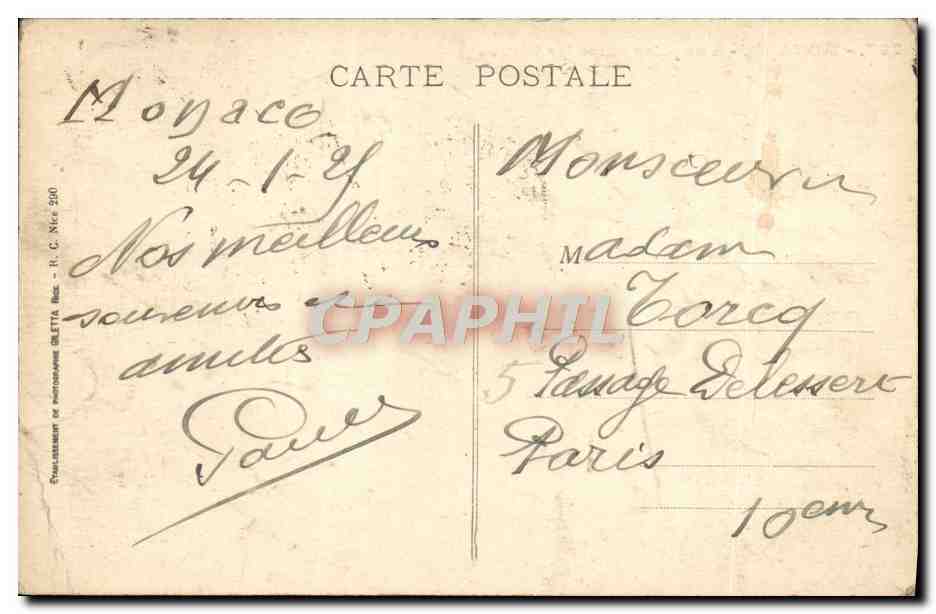 CARTE POSTALE
Monaco
24-1-25
Nos meilleurs
souvenirs et
amitiés
ÉTABLISSEMENT DE PHOTOGRAPHIE GILETTA NICE. - R. C. Nice 290
CPAPHIL
Monsieur
Madam
Torcq
5 Passage Delessert
Paris
10em